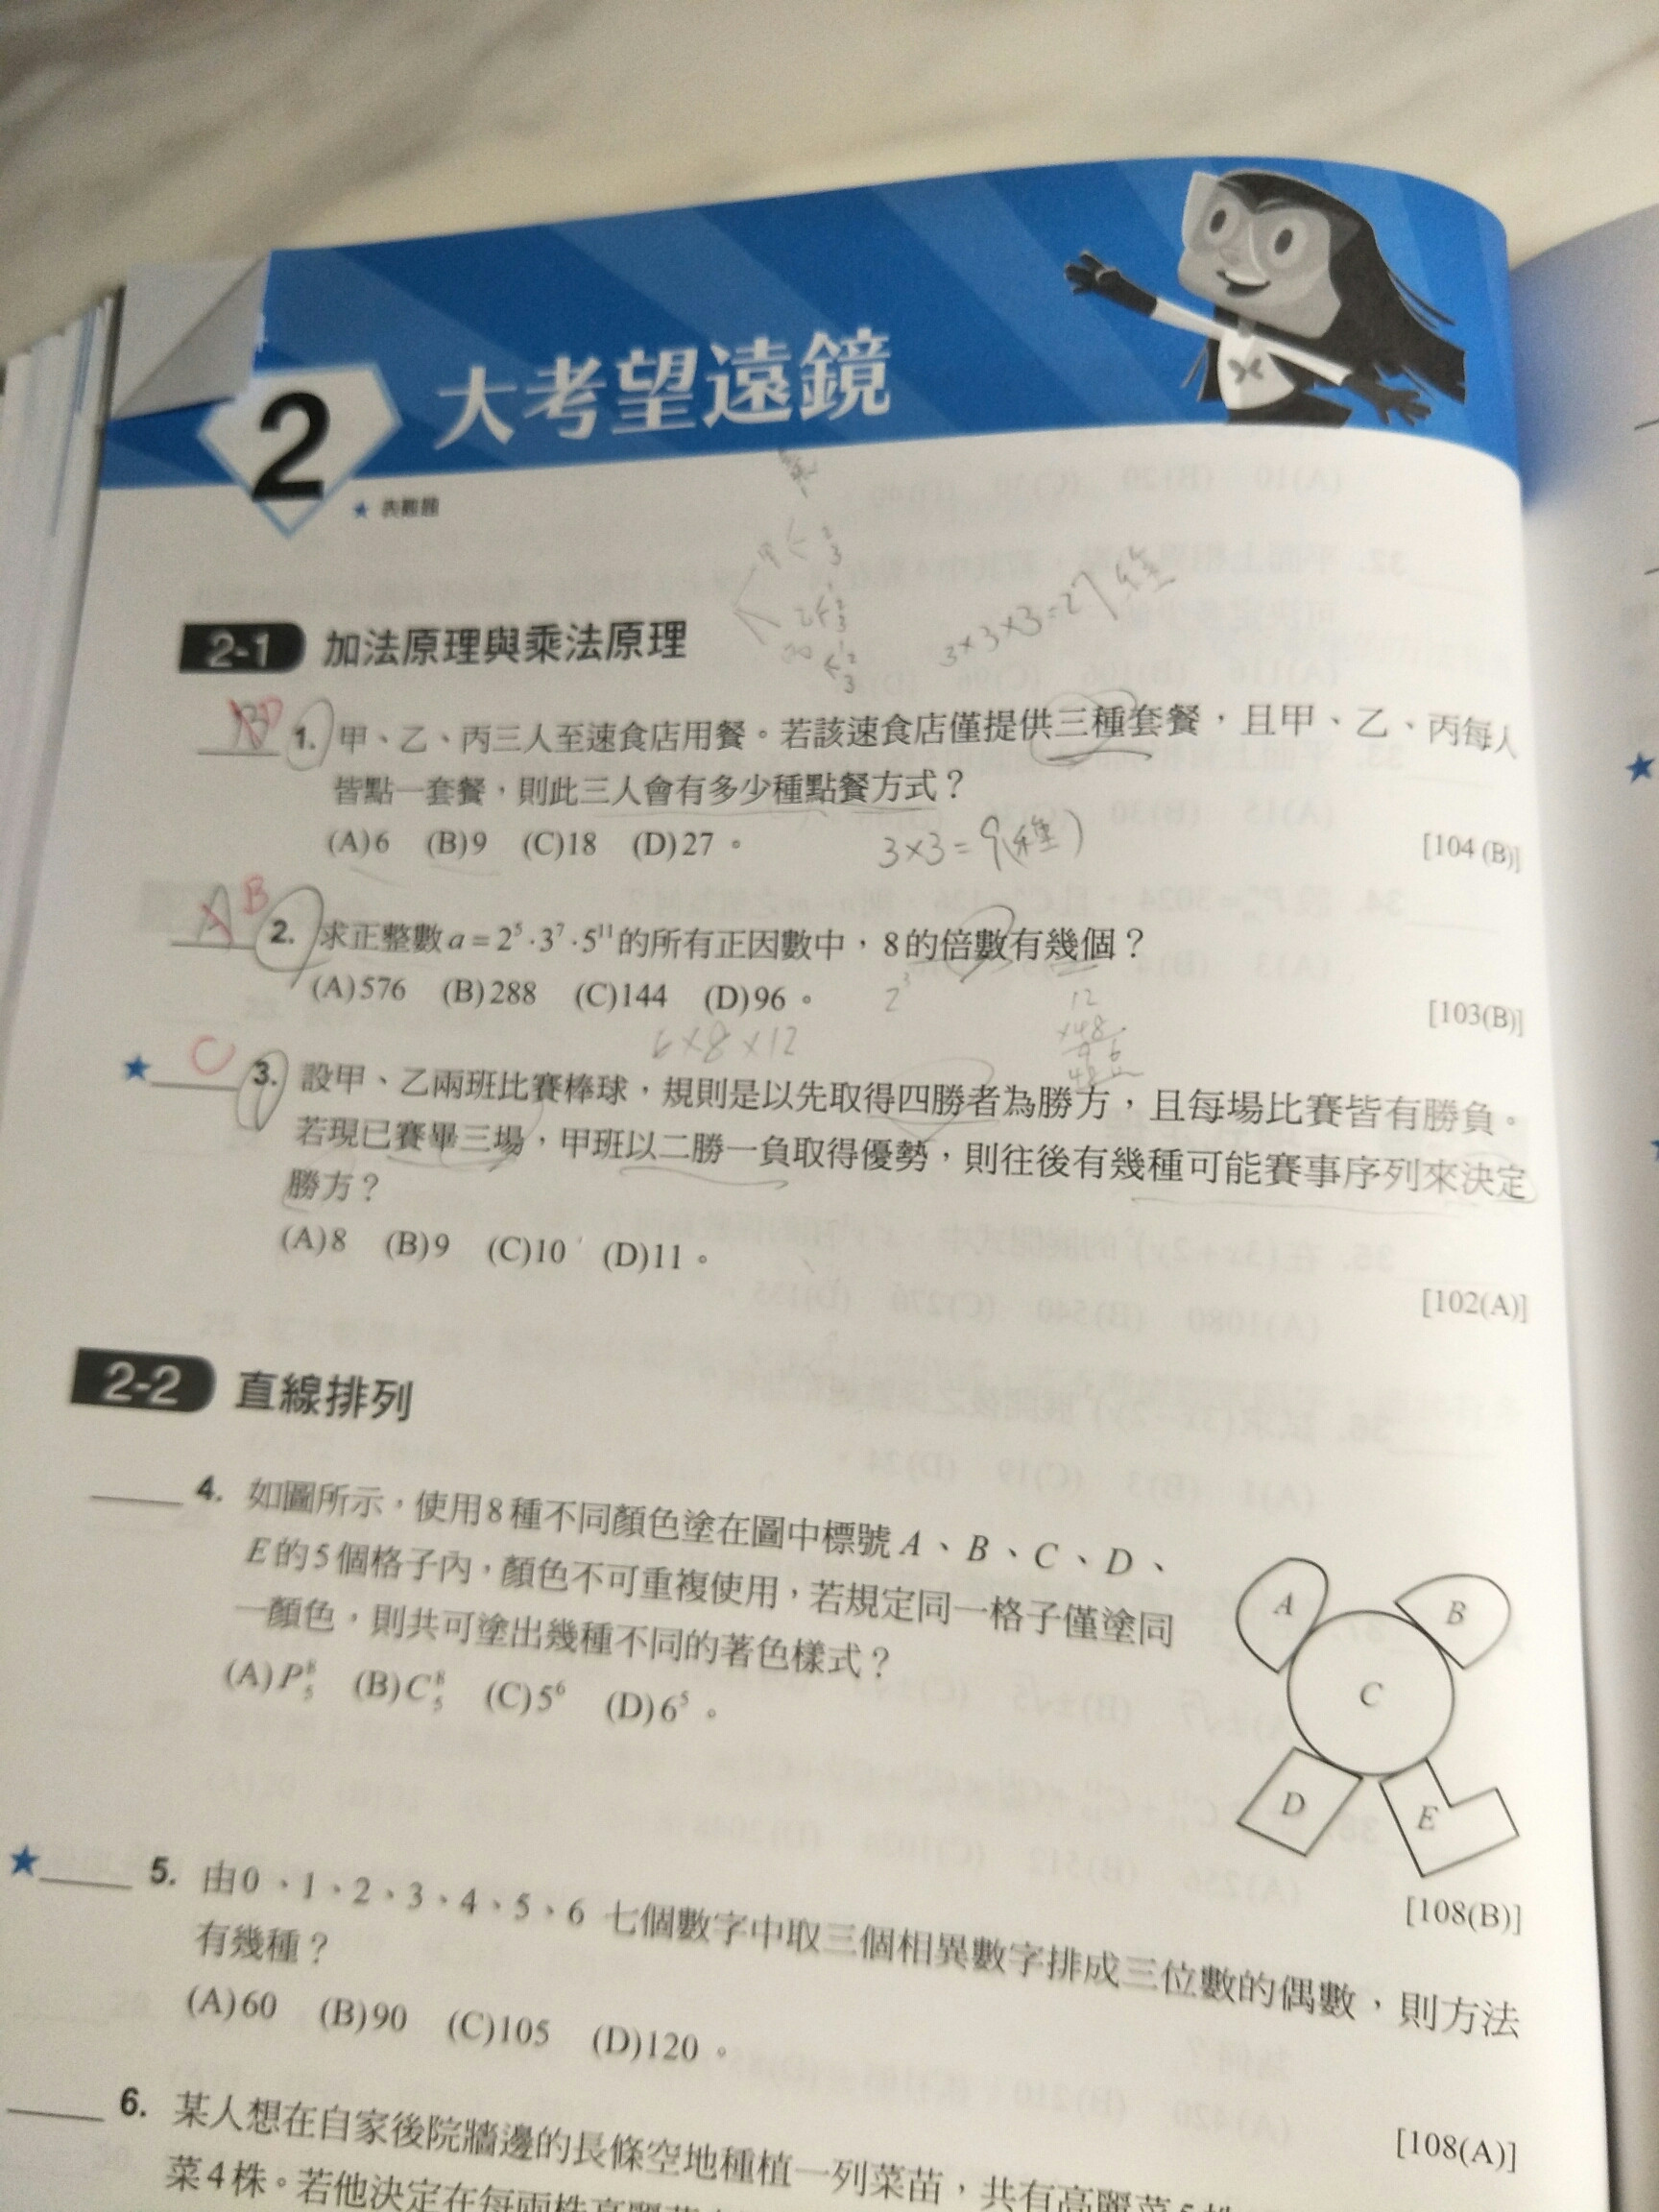 2 大考望遠鏡
★ 表難題
3×3×3=27種
2-1 加法原理與乘法原理
1. 甲、乙、丙三人至速食店用餐。若該速食店僅提供三種套餐，且甲、乙、丙每人
皆點一套餐，則此三人會有多少種點餐方式？
(A)6 (B)9 (C)18 (D)27。
3×3=9(種)
[104 (B)]
A B
2. 求正整數 a = 2⁵·3⁷·5¹¹ 的所有正因數中，8的倍數有幾個？
(A)576 (B)288 (C)144 (D)96。
2³
12
×48
96
48
[103(B)]
6×8×12
★ C 3. 設甲、乙兩班比賽棒球，規則是以先取得四勝者為勝方，且每場比賽皆有勝負。
若現已賽畢三場，甲班以二勝一負取得優勢，則往後有幾種可能賽事序列來決定
勝方？
(A)8 (B)9 (C)10 (D)11。
[102(A)]
2-2 直線排列
4. 如圖所示，使用8種不同顏色塗在圖中標號 A、B、C、D、
E的5個格子內，顏色不可重複使用，若規定同一格子僅塗同
一顏色，則共可塗出幾種不同的著色樣式？
(A)P⁸₅ (B)C⁸₅ (C)5⁶ (D)6⁵。
A
B
C
D
E
[108(B)]
★ 5. 由0、1、2、3、4、5、6 七個數字中取三個相異數字排成三位數的偶數，則方法
有幾種？
(A)60 (B)90 (C)105 (D)120。
[108(A)]
6. 某人想在自家後院牆邊的長條空地種植一列菜苗，共有高麗菜5株
菜4株。若他決定在每兩株高麗菜